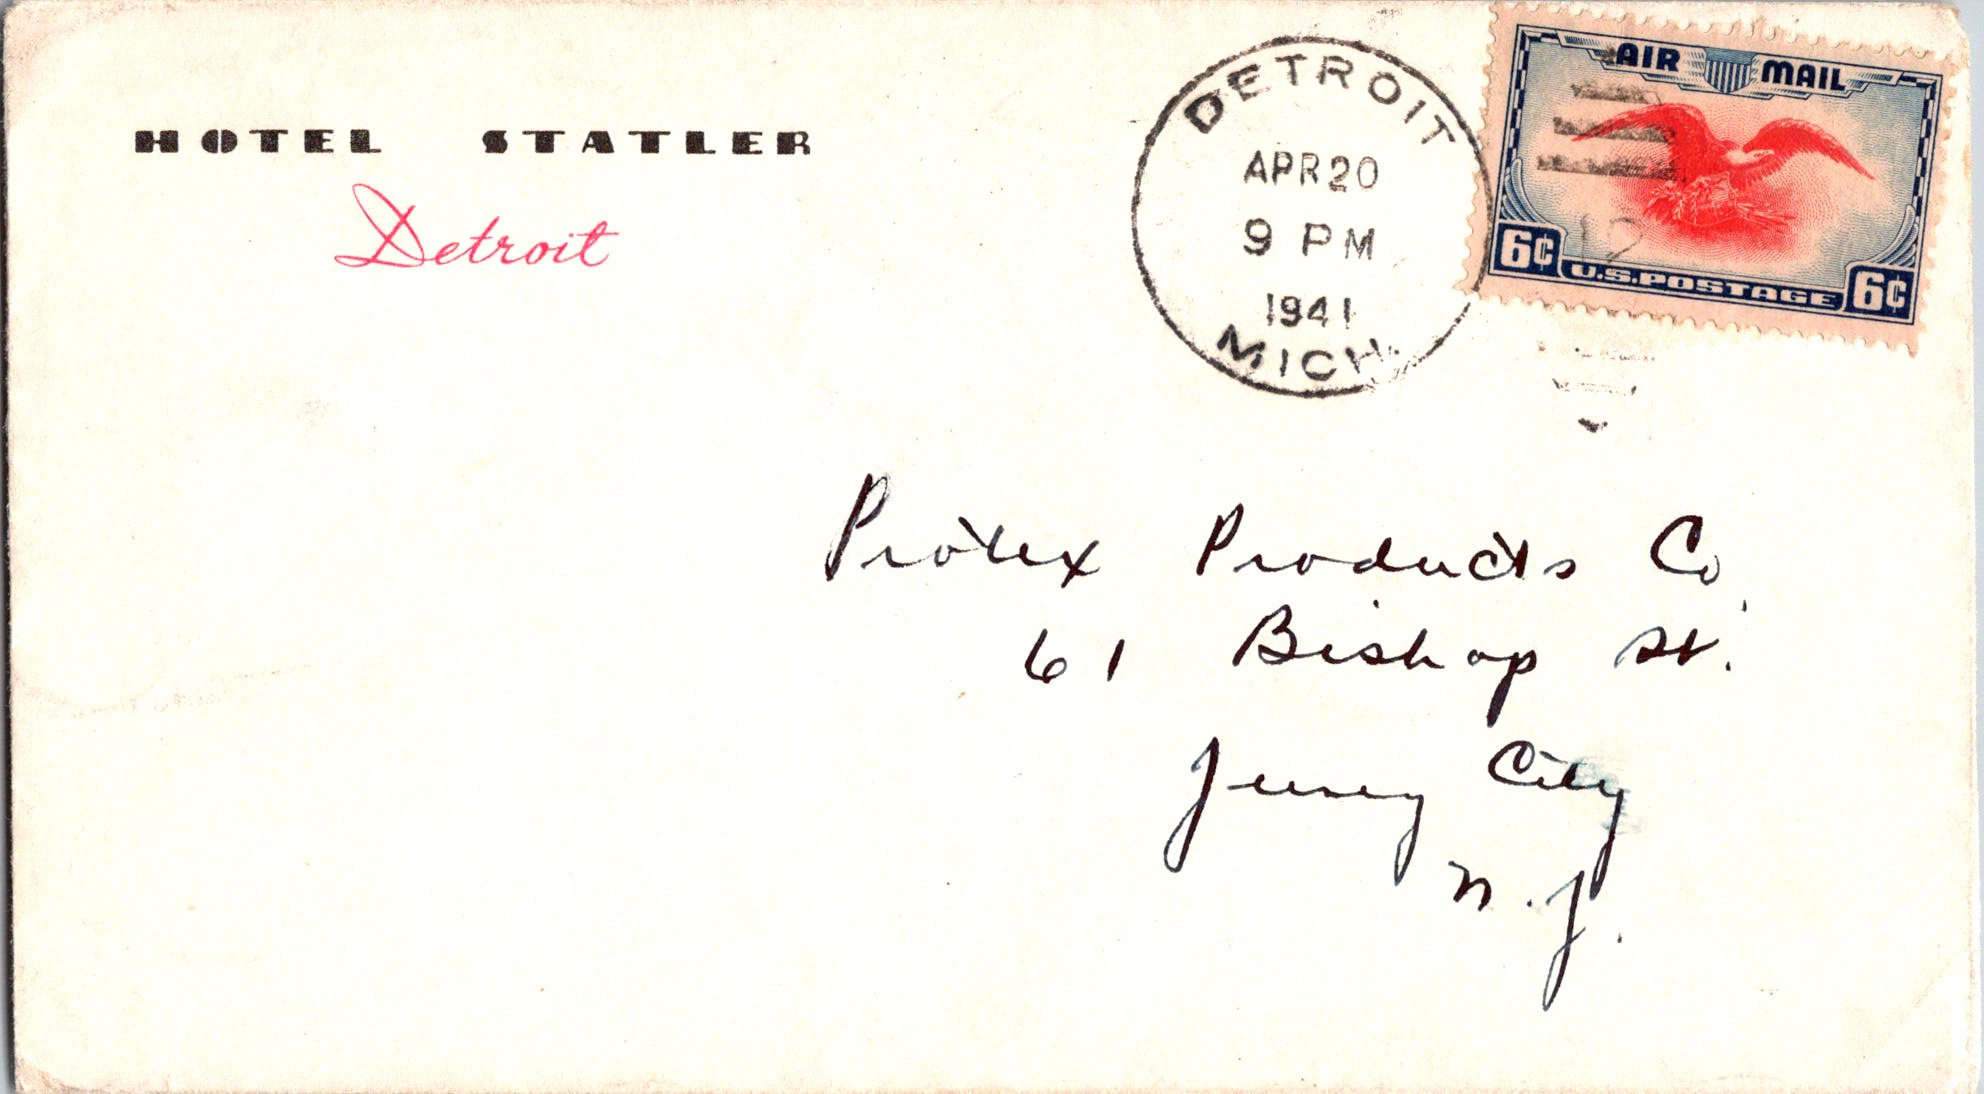 HOTEL STATLER
Detroit
DETROIT
APR 20
9 PM
1941
MICH.
AIR MAIL
6¢ U.S. POSTAGE 6¢
12
Protex Products Co.
61 Bishop St.
Jersey City
N.J.